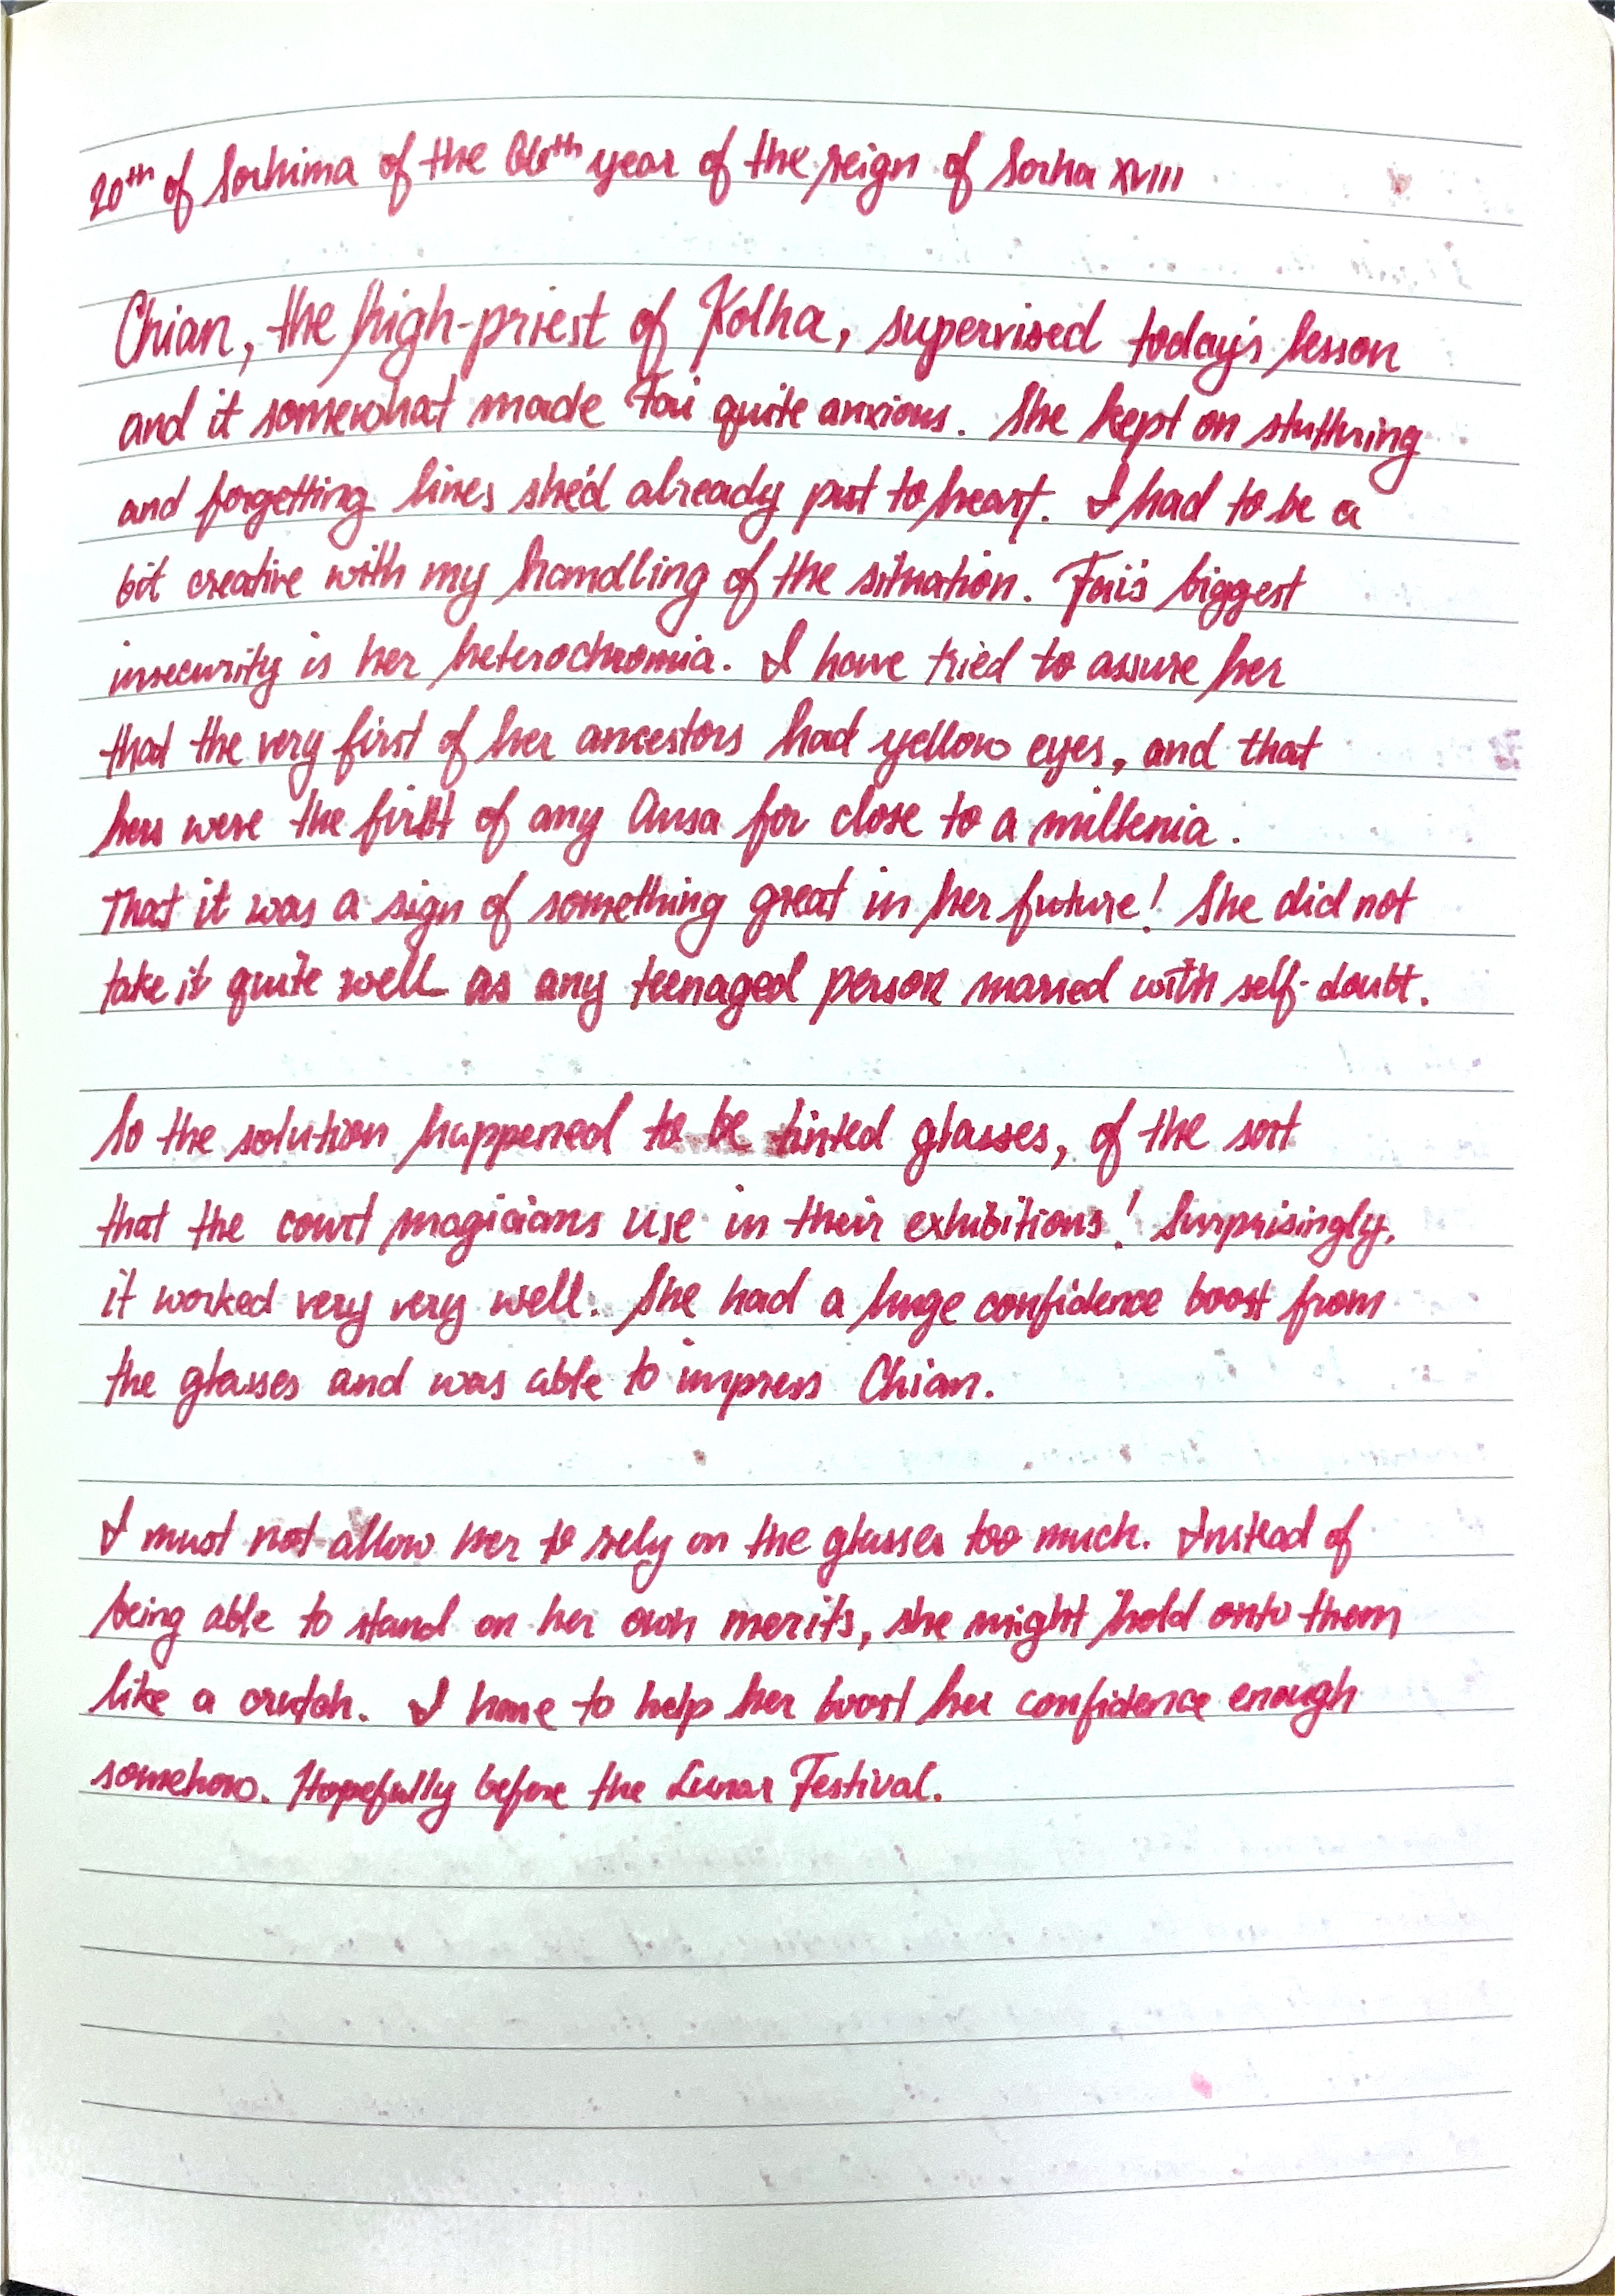 20th of Sorhima of the 66th year of the reign of Sorha XVIII
Chian, the high-priest of Kolha, supervised today's lesson
and it somewhat made Fai quite anxious. She kept on stuttering
and forgetting lines she'd already put to heart. I had to be a
bit creative with my handling of the situation. Fai's biggest
insecurity is her heterochromia. I have tried to assure her
that the very first of her ancestors had yellow eyes, and that
hers were the first of any Ansa for close to a millenia.
That it was a sign of something great in her future! She did not
take it quite well as any teenaged person marred with self-doubt.
So the solution happened to be tinted glasses, of the sort
that the court magicians use in their exhibitions! Surprisingly,
it worked very very well. She had a huge confidence boost from
the glasses and was able to impress Chian.
I must not allow her to rely on the glasses too much. Instead of
being able to stand on her own merits, she might hold onto them
like a crutch. I have to help her boost her confidence enough
somehow. Hopefully before the Lunar Festival.